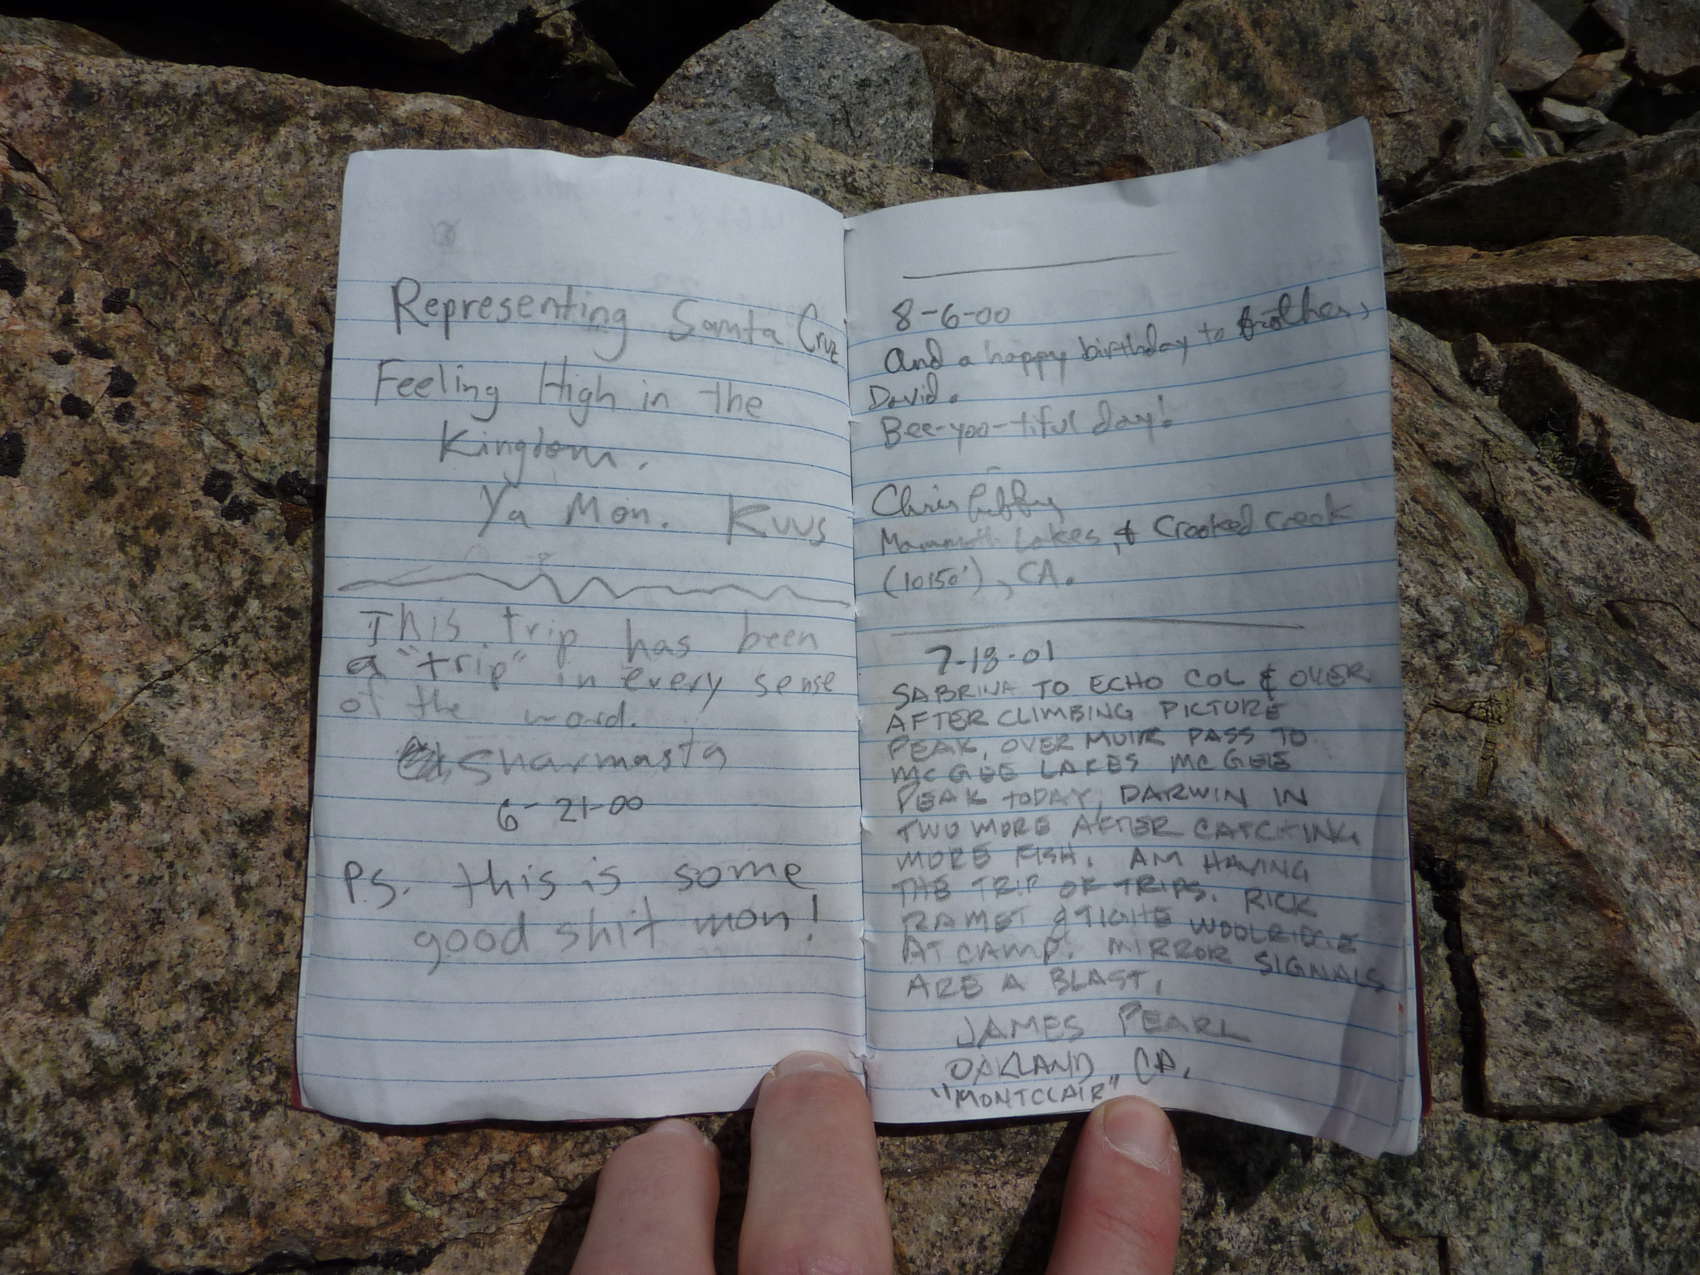 Representing Santa Cruz
Feeling High in the
Kingdom.
Ya Mon.
This trip has been
a "trip" in every sense
of the word.
Sharmasta
6-21-00
P.S. this is some
good shit mon!
8-6-00
and a happy birthday to brother,
David.
Bee-yoo-tiful day!
Chris
Mammoth Lakes, & Crooked Creek
(10150'), CA.
7-18-01
SABRINA TO ECHO COL & OVER
AFTER CLIMBING PICTURE
PEAK, OVER MUIR PASS TO
MCGEE LAKES MCGEE
PEAK TODAY, DARWIN IN
TWO MORE AFTER CATCHING
MORE FISH. AM HAVING
THE TRIP OF TRIPS. RICK
RAMET & TIGHE WOOLRIDGE
AT CAMP. MIRROR SIGNALS
ARE A BLAST.
JAMES PEARL
OAKLAND, CA.
"MONTCLAIR"